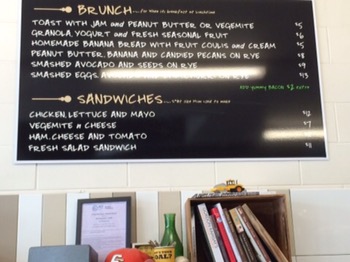 BRUNCH
TOAST WITH JAM and PEANUT BUTTER OR VEGEMITE $5
GRANOLA, YOGURT and FRESH SEASONAL FRUIT $6
HOMEMADE BANANA BREAD WITH FRUIT COULIS and CREAM $5
PEANUT BUTTER, BANANA AND CANDIED PECANS ON RYE
SMASHED AVOCADO AND SEEDS ON RYE $9
SMASHED EGGS, ON RYE $13
ADD yummy BACON $2 extra
SANDWICHES
CHICKEN, LETTUCE AND MAYO $12
VEGEMITE n CHEESE $7
HAM, CHEESE AND TOMATO
FRESH SALAD SANDWICH